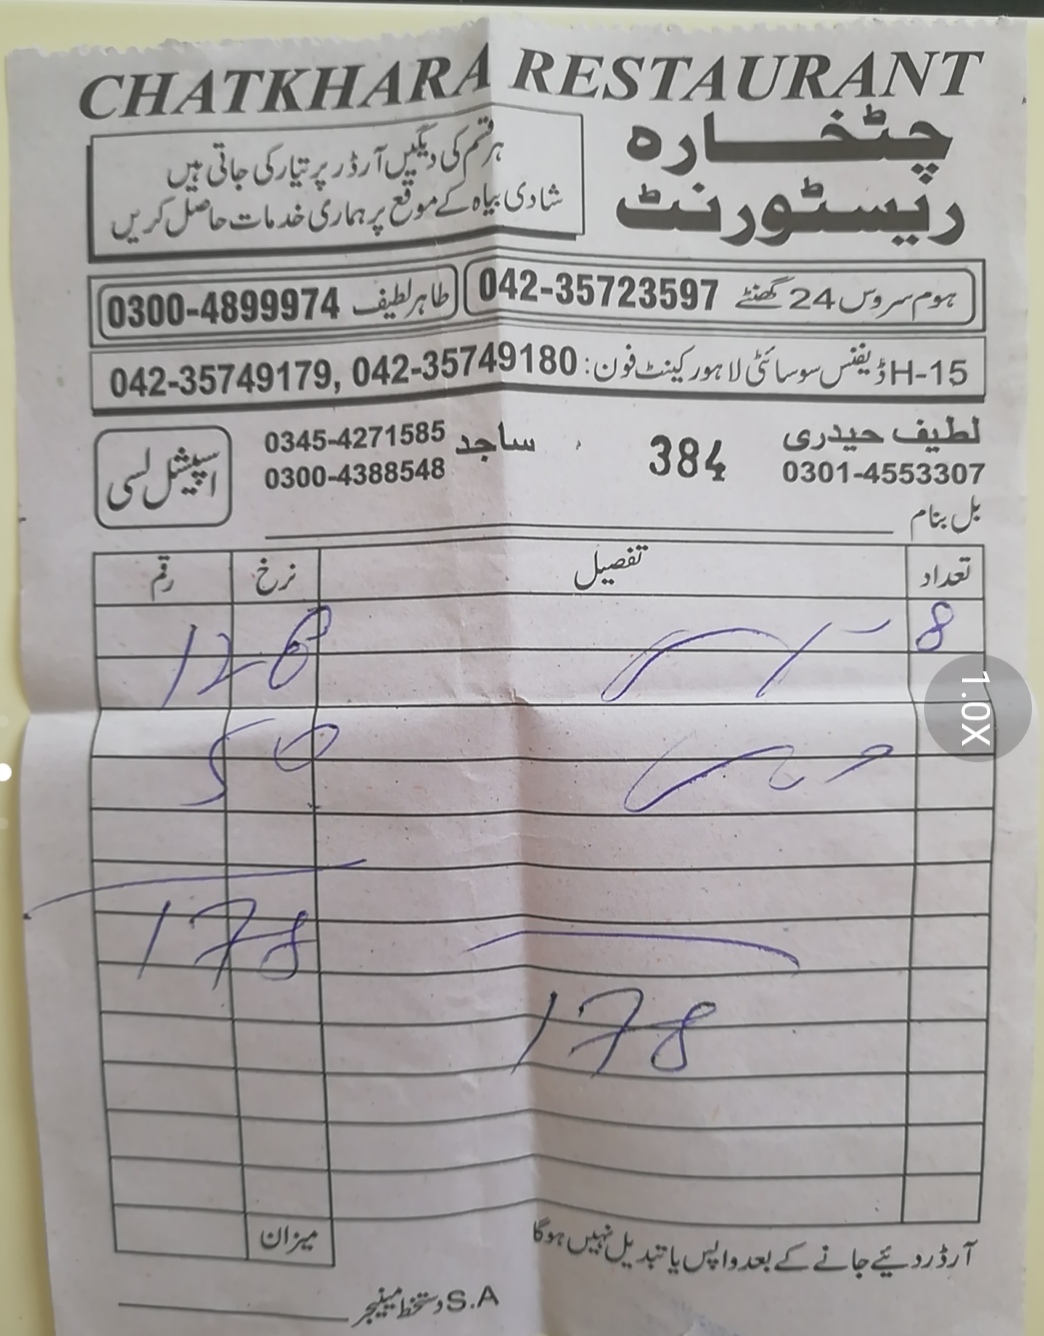 CHATKHARA RESTAURANT
چٹخارہ
ریسٹورنٹ
ہر قسم کی دیگیں آرڈر پر تیار کی جاتی ہیں
شادی بیاہ کے موقع پر ہماری خدمات حاصل کریں
ہوم سروس 24 گھنٹے 042-35723597
طاہر لطیف 0300-4899974
H-15 ڈیفنس سوسائٹی لاہور کینٹ فون: 042-35749179, 042-35749180
لطیف حیدری
0301-4553307
384
ساجد 0345-4271585
0300-4388548
اسپیشل لسی
بل بنام
تعداد تفصیل نرخ رقم
8
50
178
178
میزان
آرڈر دیئے جانے کے بعد واپس یا تبدیل نہیں ہوگا
S.A دستخط مینیجر
1.0X